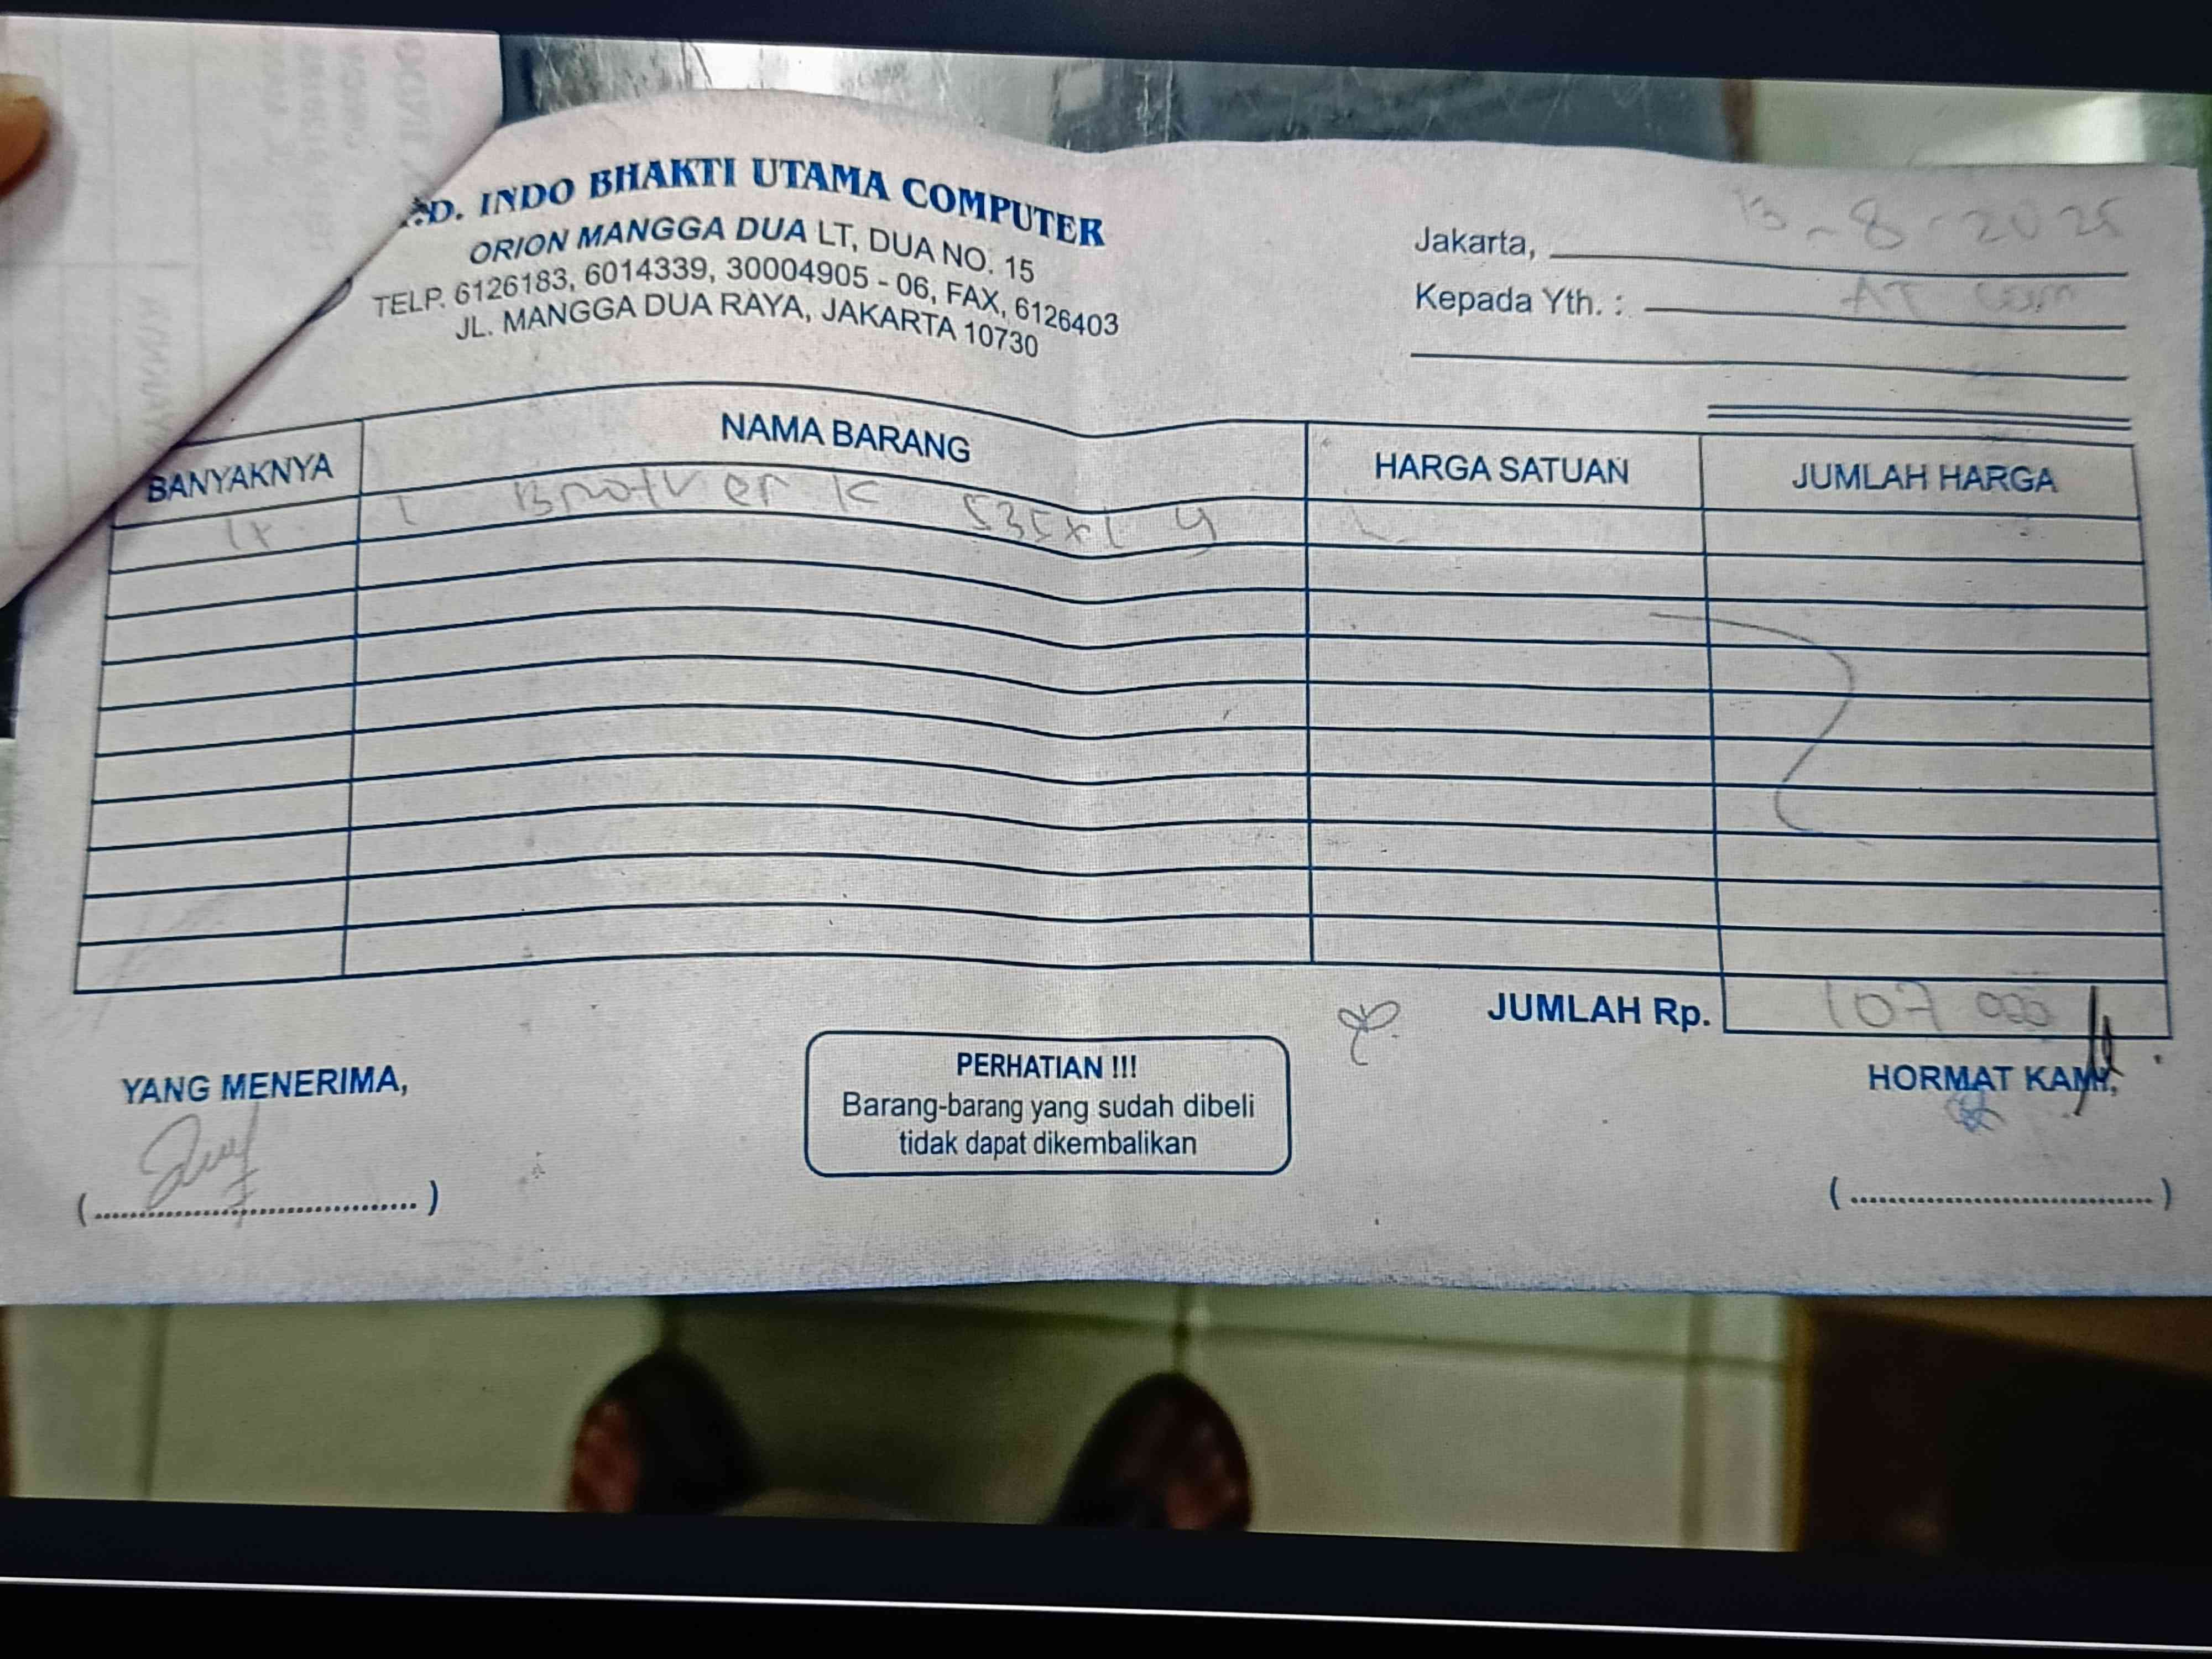 .D. INDO BHAKTI UTAMA COMPUTER
ORION MANGGA DUA LT, DUA NO. 15
TELP. 6126183, 6014339, 30004905 - 06, FAX, 6126403
JL. MANGGA DUA RAYA, JAKARTA 10730
Jakarta, 13-8-2025
Kepada Yth. : AT com
BANYAKNYA NAMA BARANG HARGA SATUAN JUMLAH HARGA
1x Brother 535xl y
JUMLAH Rp. 107 000
YANG MENERIMA,
PERHATIAN !!!
Barang-barang yang sudah dibeli
tidak dapat dikembalikan
HORMAT KAMI,
(........................................)
(........................................)